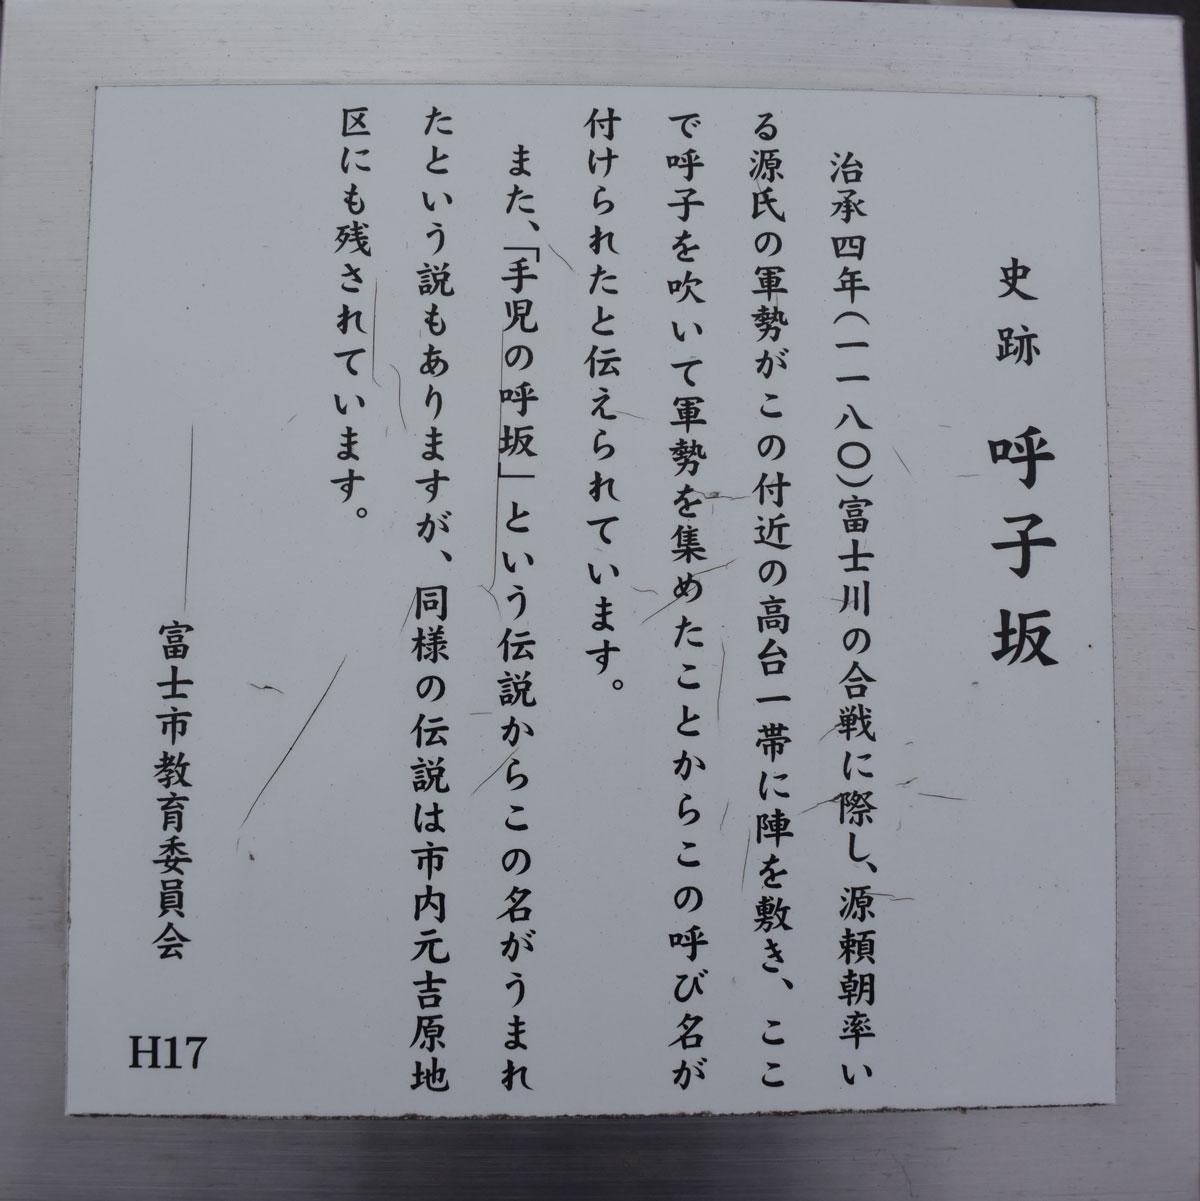 史跡 呼子坂
治承四年(一一八〇)富士川の合戦に際し、源頼朝率い
る源氏の軍勢がこの付近の高台一帯に陣を敷き、ここ
で呼子を吹いて軍勢を集めたことからこの呼び名が
付けられたと伝えられています。
また、「手児の呼坂」という伝説からこの名がうまれ
たという説もありますが、同様の伝説は市内元吉原地
区にも残されています。
富士市教育委員会
H17